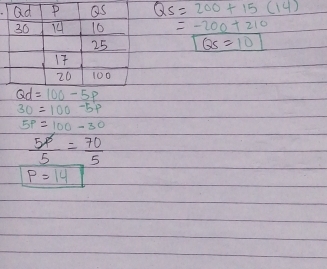 Qd P QS
30 14 10
25
17
20 100
Qd = 100 - 5P
30 = 100 - 5P
5P = 100 - 30
5P = 70
5 5
P = 14
Qs = 200 + 15 (14)
= -200 + 210
Qs = 10